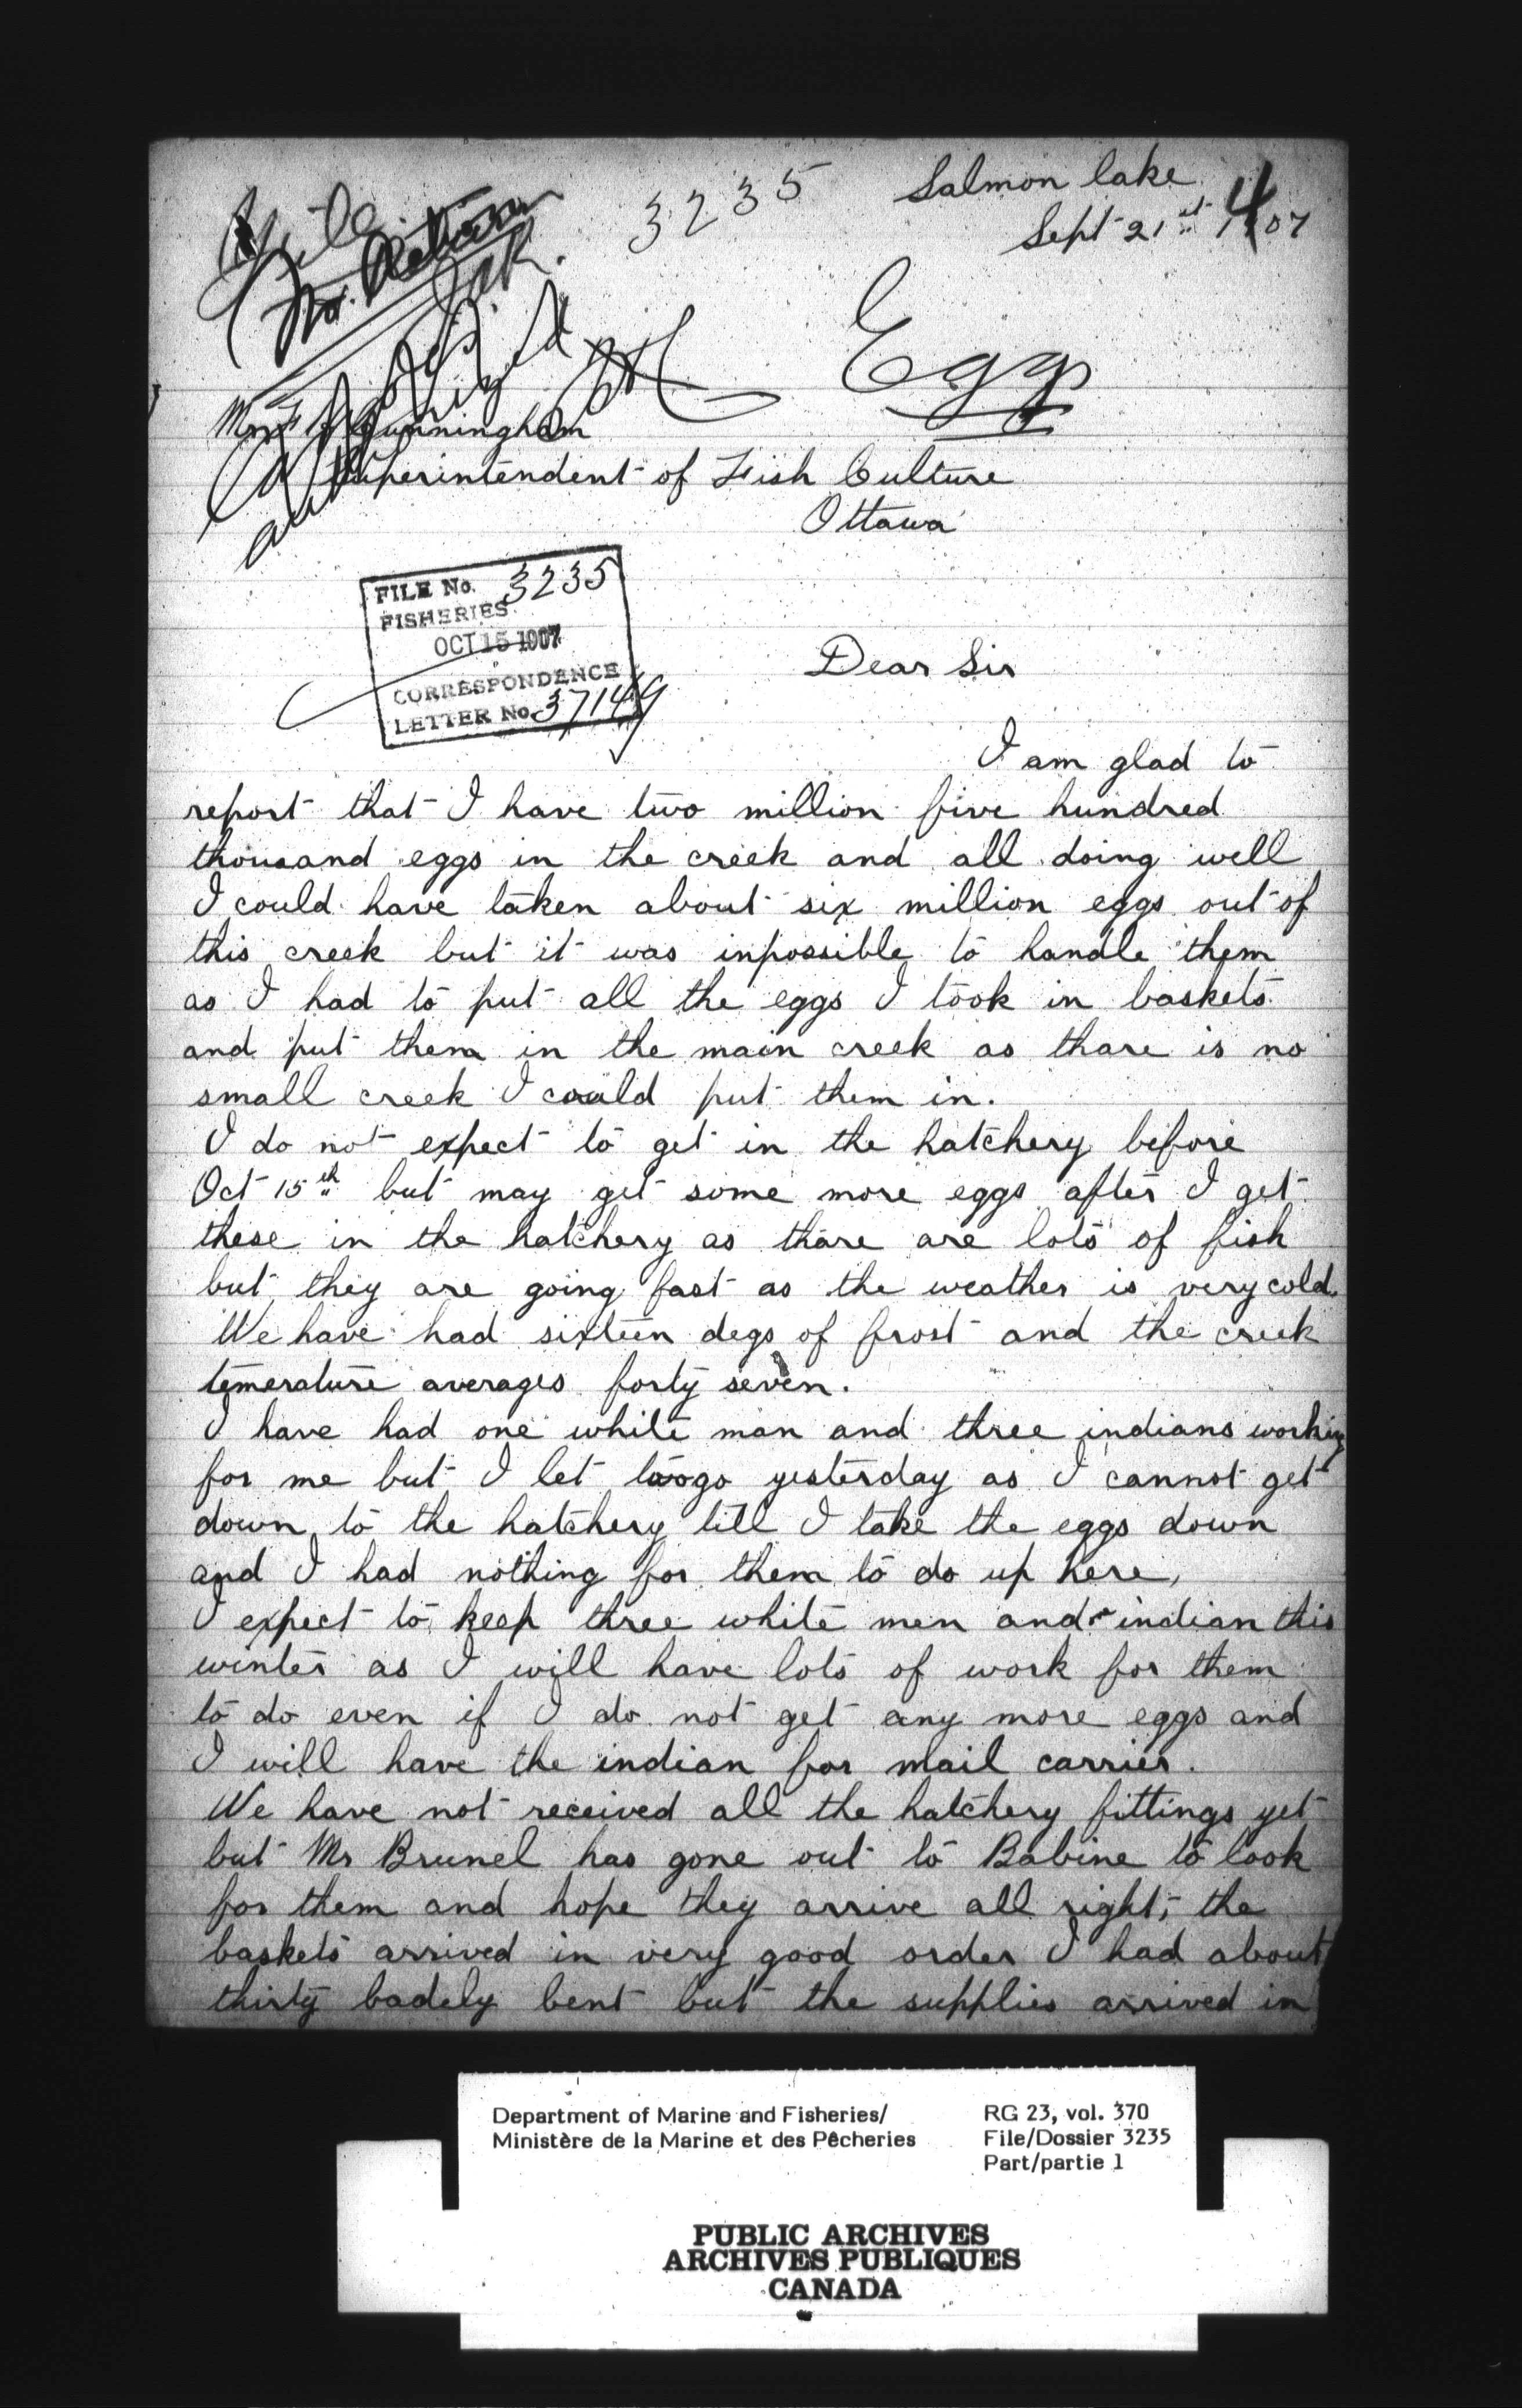 Salmon lake
Sept 21st 1907
4
3235
File
No. Return
Egg
Mr F. H. Cunningham
Superintendent of Fish Culture
Ottawa
FILE No. 3235
FISHERIES
OCT 15 1907
CORRESPONDENCE
LETTER No. 37149
Dear Sir
I am glad to
report that I have two million five hundred
thousand eggs in the creek and all doing well
I could have taken about six million eggs out of
this creek but it was inpossible to handle them
as I had to put all the eggs I took in baskets
and put them in the main creek as thare is no
small creek I could put them in.
I do not expect to get in the hatchery before
Oct 15th but may get some more eggs after I get
these in the hatchery as thare are lots of fish
but they are going fast as the weather is very cold.
We have had sixteen degs of frost and the creek
temerature averages forty seven.
I have had one white man and three indians working
for me but I let two go yesterday as I cannot get
down to the hatchery till I take the eggs down
and I had nothing for them to do up here,
I expect to keep three white men and indian this
winter as I will have lots of work for them
to do even if I do not get any more eggs and
I will have the indian for mail carrier.
We have not received all the hatchery fittings yet
but Mr Brunel has gone out to Babine to look
for them and hope they arrive all right, the
baskets arrived in very good order I had about
thirty badely bent but the supplies arrived in
Department of Marine and Fisheries/
Ministère de la Marine et des Pêcheries
RG 23, vol. 370
File/Dossier 3235
Part/partie 1
PUBLIC ARCHIVES
ARCHIVES PUBLIQUES
CANADA